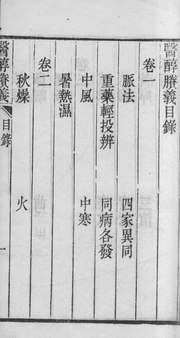 醫醇賸義目錄
卷一
脈法　四家異同
重藥輕投辨　同病各發
中風　中寒
暑熱濕
卷二
秋燥　火
醫醇賸義　目錄　一